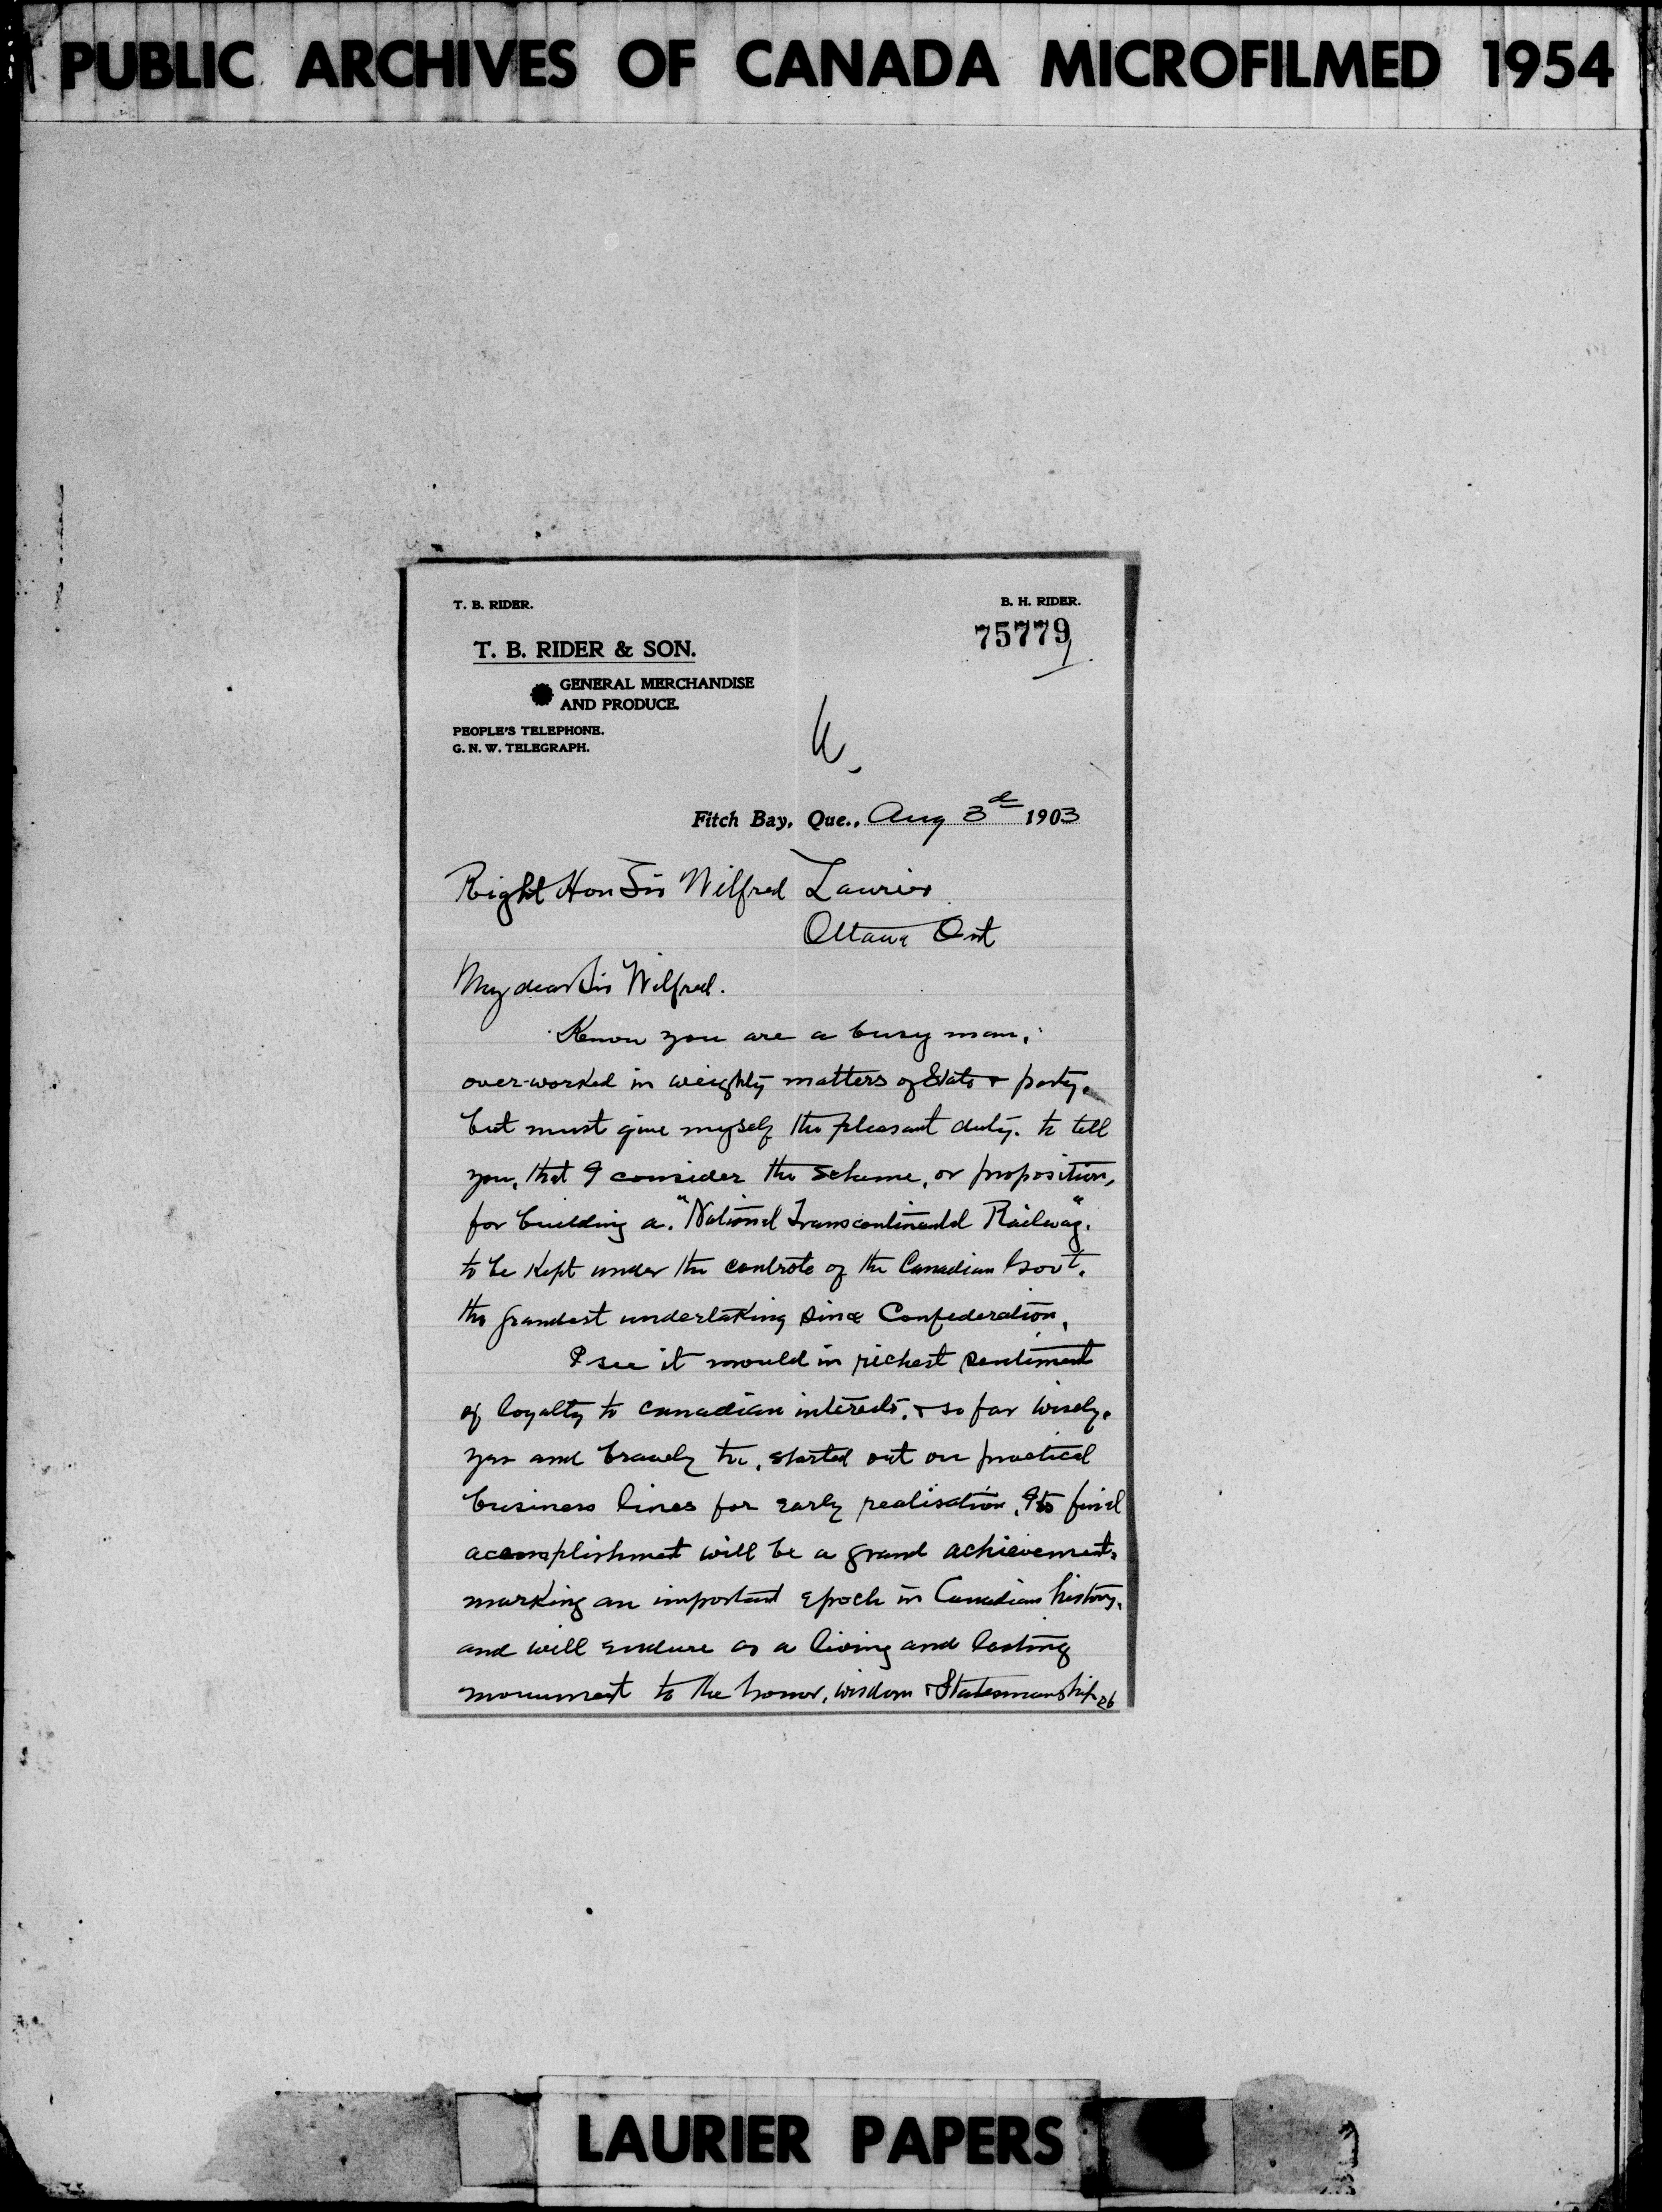 PUBLIC ARCHIVES OF CANADA MICROFILMED 1954
T. B. RIDER.
B. H. RIDER.
75779
T. B. RIDER & SON.
GENERAL MERCHANDISE
AND PRODUCE.
PEOPLE'S TELEPHONE.
G. N. W. TELEGRAPH.
Fitch Bay, Que., Aug 3d 1903
Right Hon Sir Wilfred Laurier
Ottawa Ont
My dear Sir Wilfred.
Know you are a busy man,
over-worked in weighty matters of State & party.
but must give myself the pleasant duty. to tell
you, that I consider the scheme, or proposition,
for building a. "National Transcontinental Railway".
to be kept under the controle of the Canadian Govt.
the grandest undertaking since Confederation.
I see it mould in richest sentiment
of loyalty to canadian interests, & so far wisely.
yes and bravely too, started out on practical
business lines for early realisation. Its final
accomplishment will be a grand achievement.
marking an important epoch in Canadian history.
and will endure as a living and lasting
monument to the honor, wisdom & Statesmanship of
LAURIER PAPERS